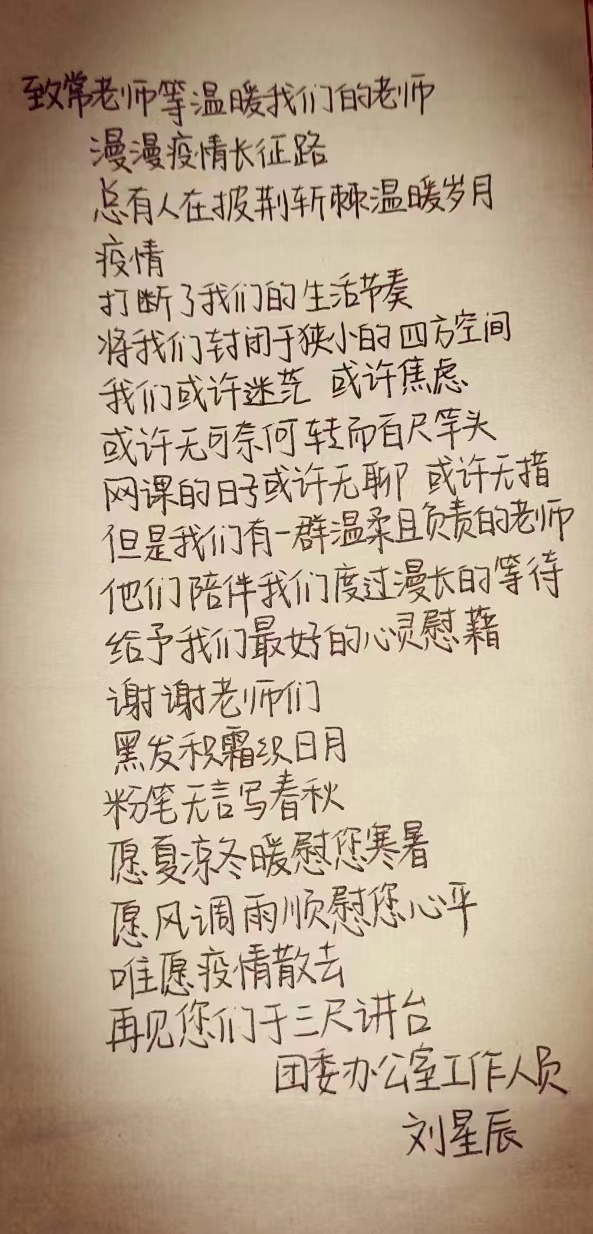 致常老师等温暖我们的老师
漫漫疫情长征路
总有人在披荆斩棘温暖岁月
疫情
打断了我们的生活节奏
将我们封闭于狭小的四方空间
我们或许迷茫 或许焦虑
或许无可奈何转而百尺竿头
网课的日子或许无聊 或许无措
但是我们有一群温柔且负责的老师
他们陪伴我们度过漫长的等待
给予我们最好的心灵慰藉
谢谢老师们
黑发积霜织日月
粉笔无言写春秋
愿夏凉冬暖慰您寒暑
愿风调雨顺慰您心平
唯愿疫情散去
再见您们于三尺讲台
团委办公室工作人员
刘星辰